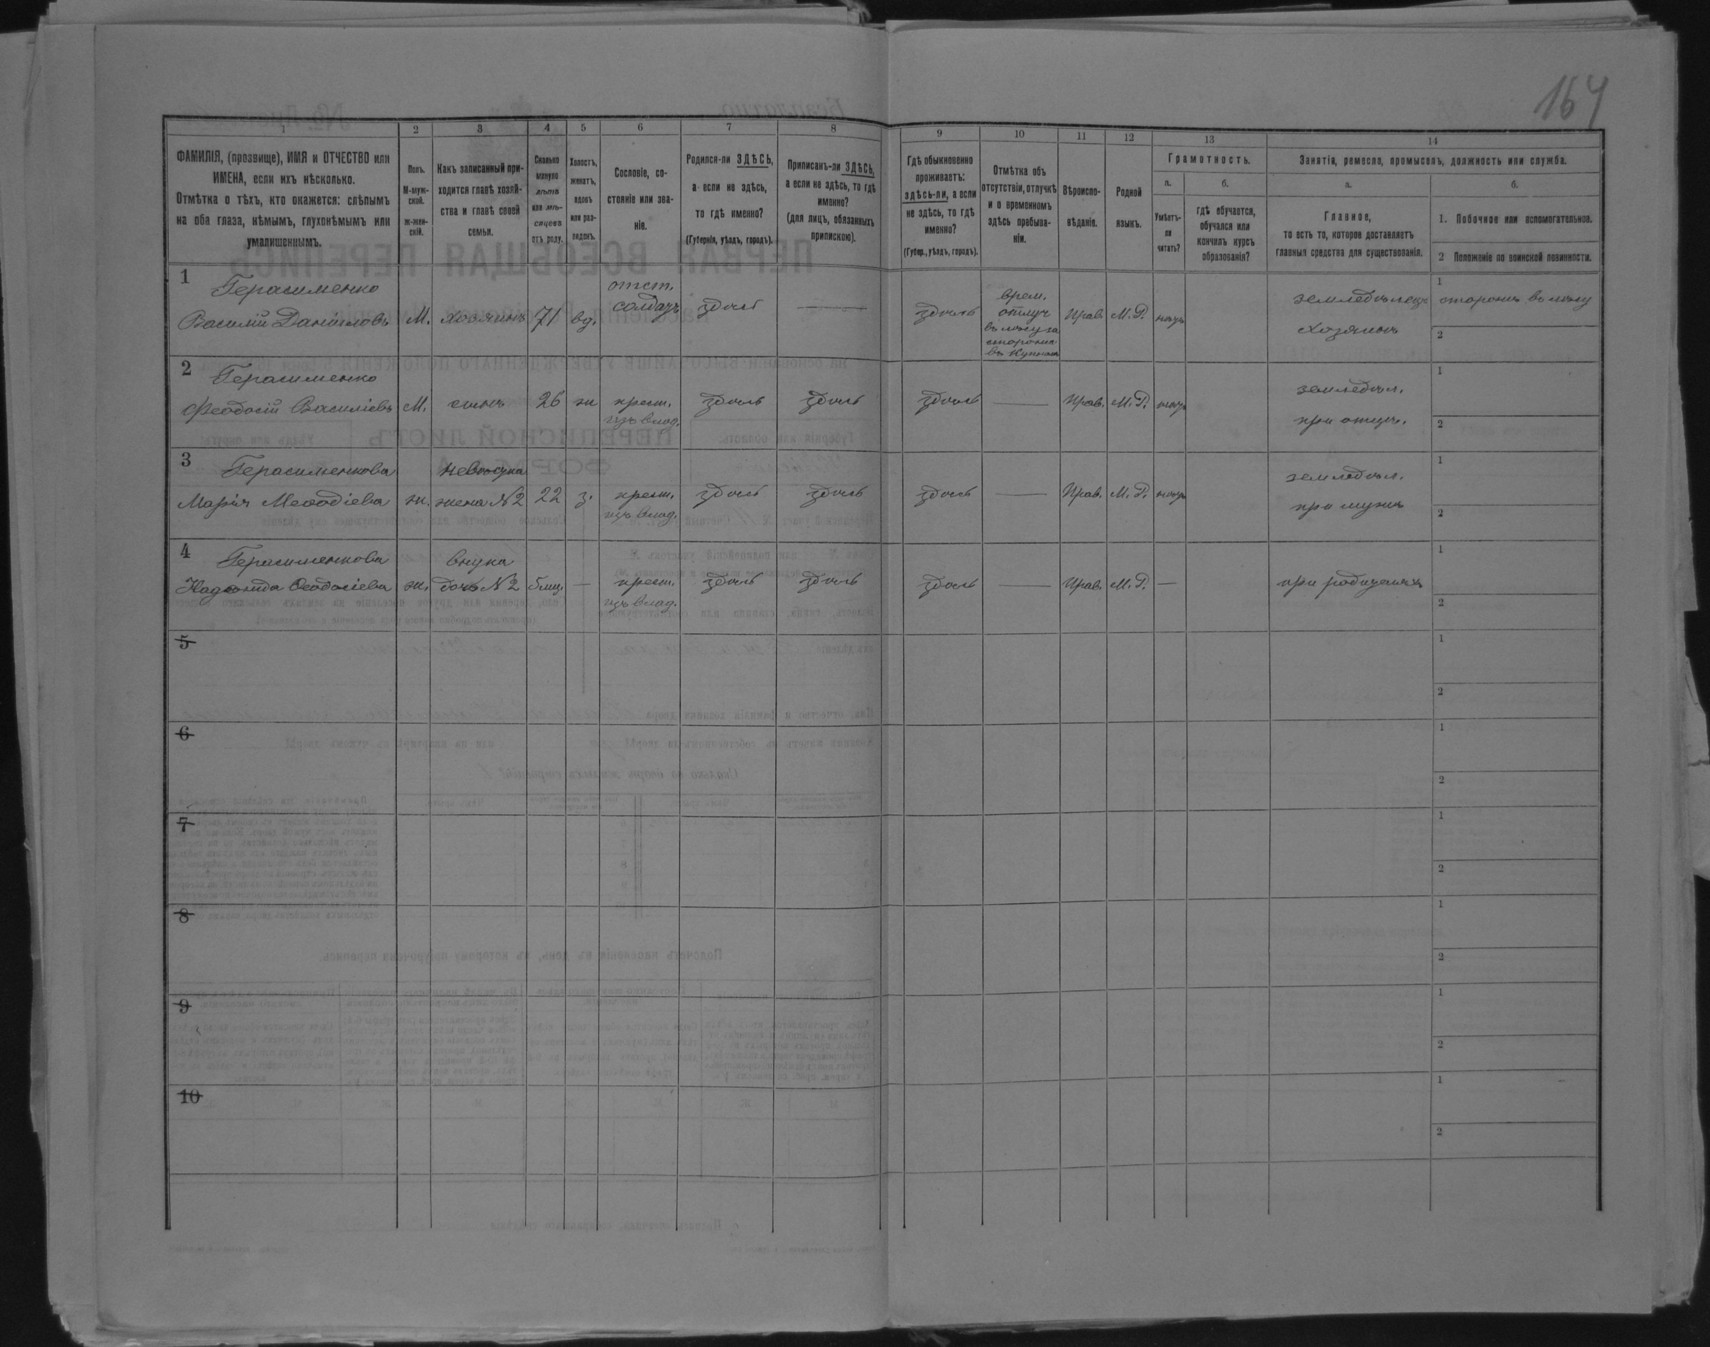 164
1 2 3 4 5 6 7 8 9 10 11 12 13 14
ФАМИЛІЯ, (прозвище), ИМЯ и ОТЧЕСТВО или
ИМЕНА, если ихъ нѣсколько.
Отмѣтка о тѣхъ, кто окажется: слѣпымъ
на оба глаза, нѣмымъ, глухонѣмымъ или
умалишеннымъ.
Полъ.
М-муж-
ской.
ж-жен-
скій.
Какъ записанный при-
ходится главѣ хозяй-
ства и главѣ своей
семьи.
Сколько
минуло
лѣтъ
или мѣ-
сяцевъ
отъ роду.
Холостъ,
женатъ,
вдовъ
или раз-
веденъ.
Сословіе, со-
стояніе или зва-
ніе.
Родился-ли ЗДѢСЬ,
а если не здѣсь,
то гдѣ именно?
(Губернія, уѣздъ, городъ).
Приписанъ-ли ЗДѢСЬ,
а если не здѣсь, то гдѣ
именно?
(для лицъ, обязанныхъ
припискою).
Гдѣ обыкновенно
проживаетъ:
здѣсь-ли, а если
не здѣсь, то гдѣ
именно?
(Губер., уѣздъ, городъ).
Отмѣтка объ
отсутствіи, отлучкѣ
и о временномъ
здѣсь пребыва-
ніи.
Вѣроиспо-
вѣданіе.
Родной
языкъ.
Грамотность.
а.
Умѣетъ-
ли
читать?
б.
гдѣ обучается,
обучался или
кончилъ курсъ
образованія?
Занятія, ремесло, промыселъ, должность или служба.
а.
Главное,
то есть то, которое доставляетъ
главныя средства для существованія.
б.
1. Побочное или вспомогательное.
2 Положеніе по воинской повинности.
1 Герасименко
Василій Даніиловъ
М. хозяинъ 71 вд.
отст.
солдатъ
здѣсь — здѣсь
врем.
отлуч
Прав. М.Р. нѣтъ
земледѣлецъ
хозяинъ
1
2
2 Герасименко
Ѳеодосій Василіевъ М. сынъ 26 ж крест.
изъ влад.
здѣсь здѣсь здѣсь — Прав. М.Р. нѣтъ
земледѣл.
при отцѣ.
1
2
3 Герасименкова
Марія Меѳодіева ж.
невѣстка
жена №2 22 з. крест.
изъ влад.
здѣсь здѣсь здѣсь — Прав. М.Р. нѣтъ
земледѣл.
при мужѣ
1
2
4 Герасименкова
Надежда Ѳеодосіева ж.
внука
дочь №2 5 мц. — крест.
изъ влад.
здѣсь здѣсь здѣсь — Прав. М.Р. —
при родителяхъ
1
2
5 1
2
6 1
2
7 1
2
8 1
2
9 1
2
10 1
2